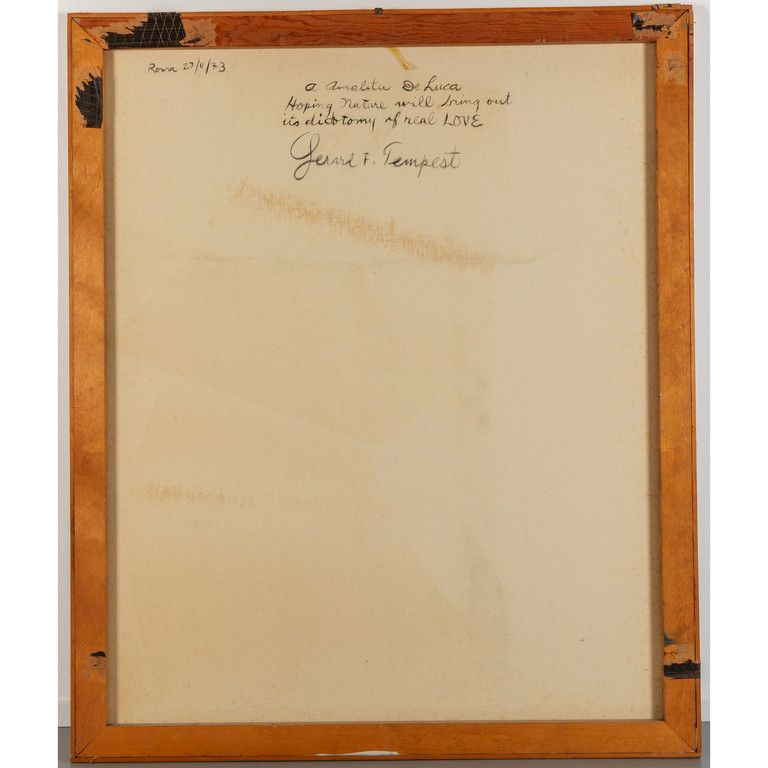 Roma 27/11/73
a Amalita De Luca
Hoping Nature will bring out
its dicotomy of real LOVE
Gerard F. Tempest